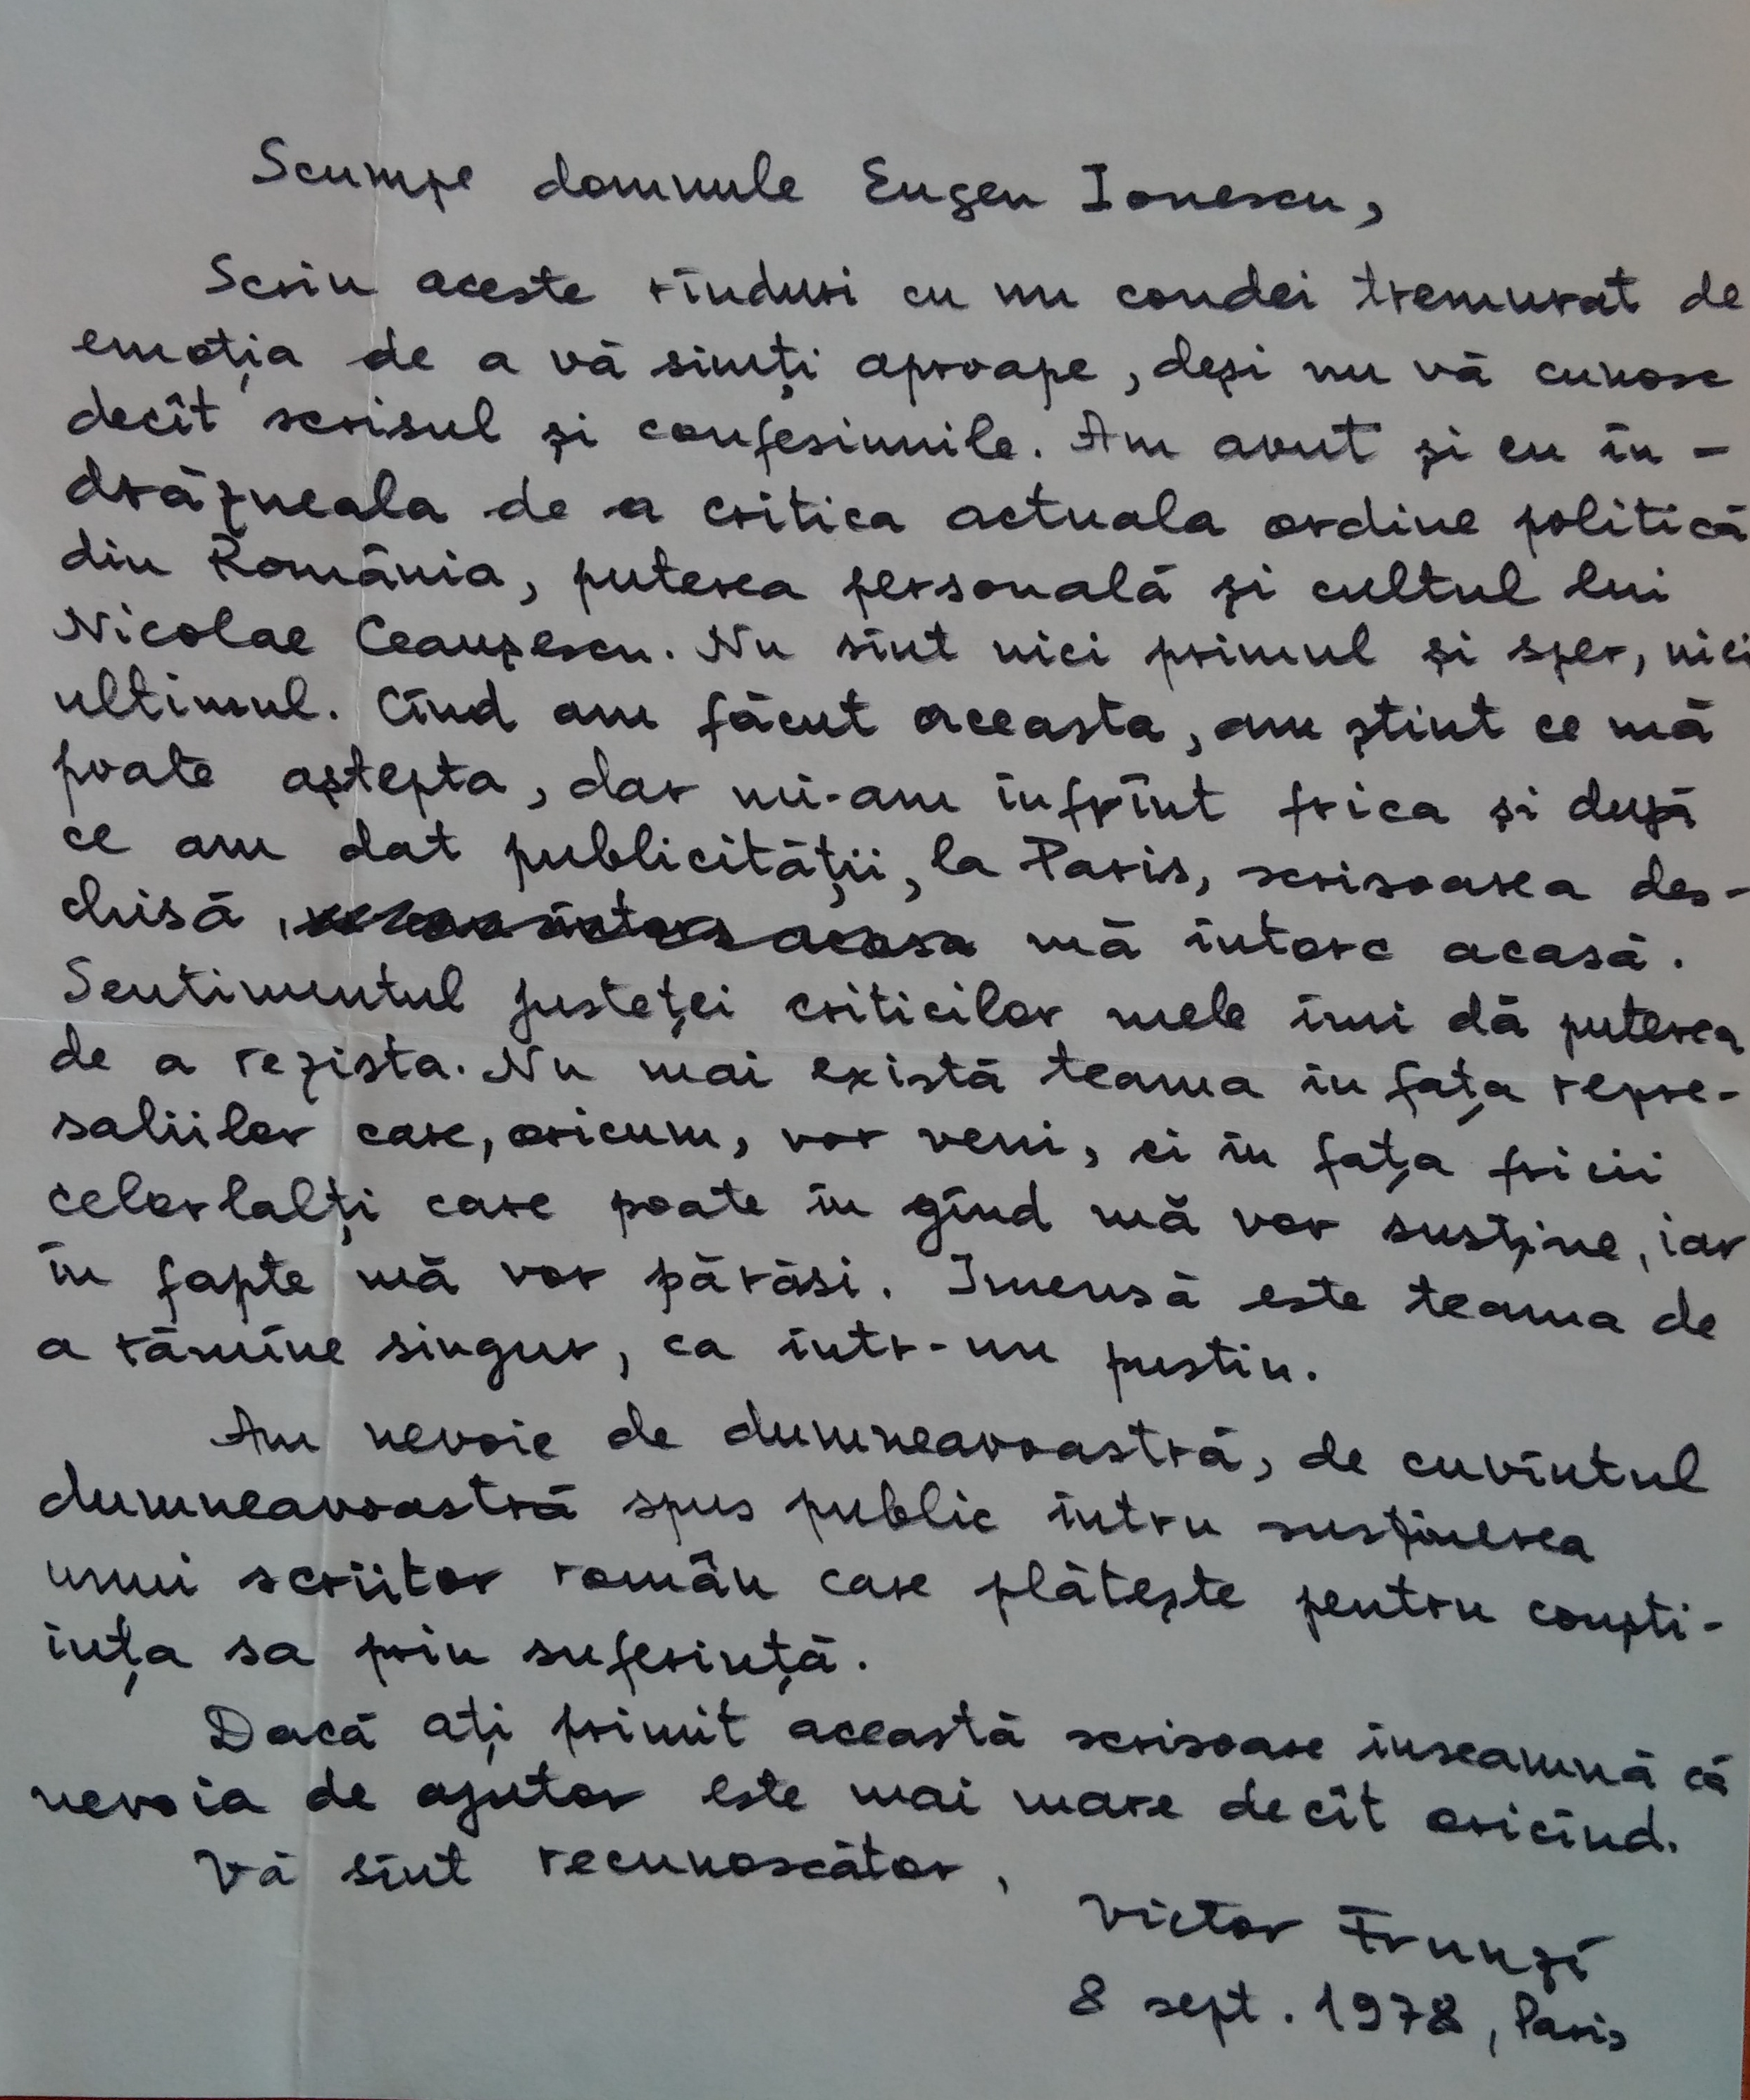 Scumpe domnule Eugen Ionescu,
Scriu aceste rînduri cu un condei tremurat de
emoția de a vă simți aproape, deși nu vă cunosc
decît scrisul și confesiunile. Am avut și eu în-
drăzneala de a critica actuala ordine politică
din România, puterea personală și cultul lui
Nicolae Ceaușescu. Nu sînt nici primul și sper, nici
ultimul. Cînd am făcut aceasta, am știut ce mă
poate aștepta, dar mi-am înfrînt frica și după
ce am dat publicității, la Paris, scrisoarea des-
chisă, mă întorc acasă.
Sentimentul justeței criticilor mele îmi dă puterea
de a rezista. Nu mai există teama în fața repre-
saliilor care, oricum, vor veni, ci în fața fricii
celorlalți care poate în gînd mă vor susține, iar
în fapte mă vor părăsi. Imensă este teama de
a rămîne singur, ca într-un pustiu.
Am nevoie de dumneavoastră, de cuvîntul
dumneavoastră spus public întru susținerea
unui scriitor român care plătește pentru conști-
ința sa prin suferință.
Dacă ați primit această scrisoare înseamnă că
nevoia de ajutor este mai mare decît oricînd.
Vă sînt recunoscător,
Victor Frunză
8 sept. 1978, Paris